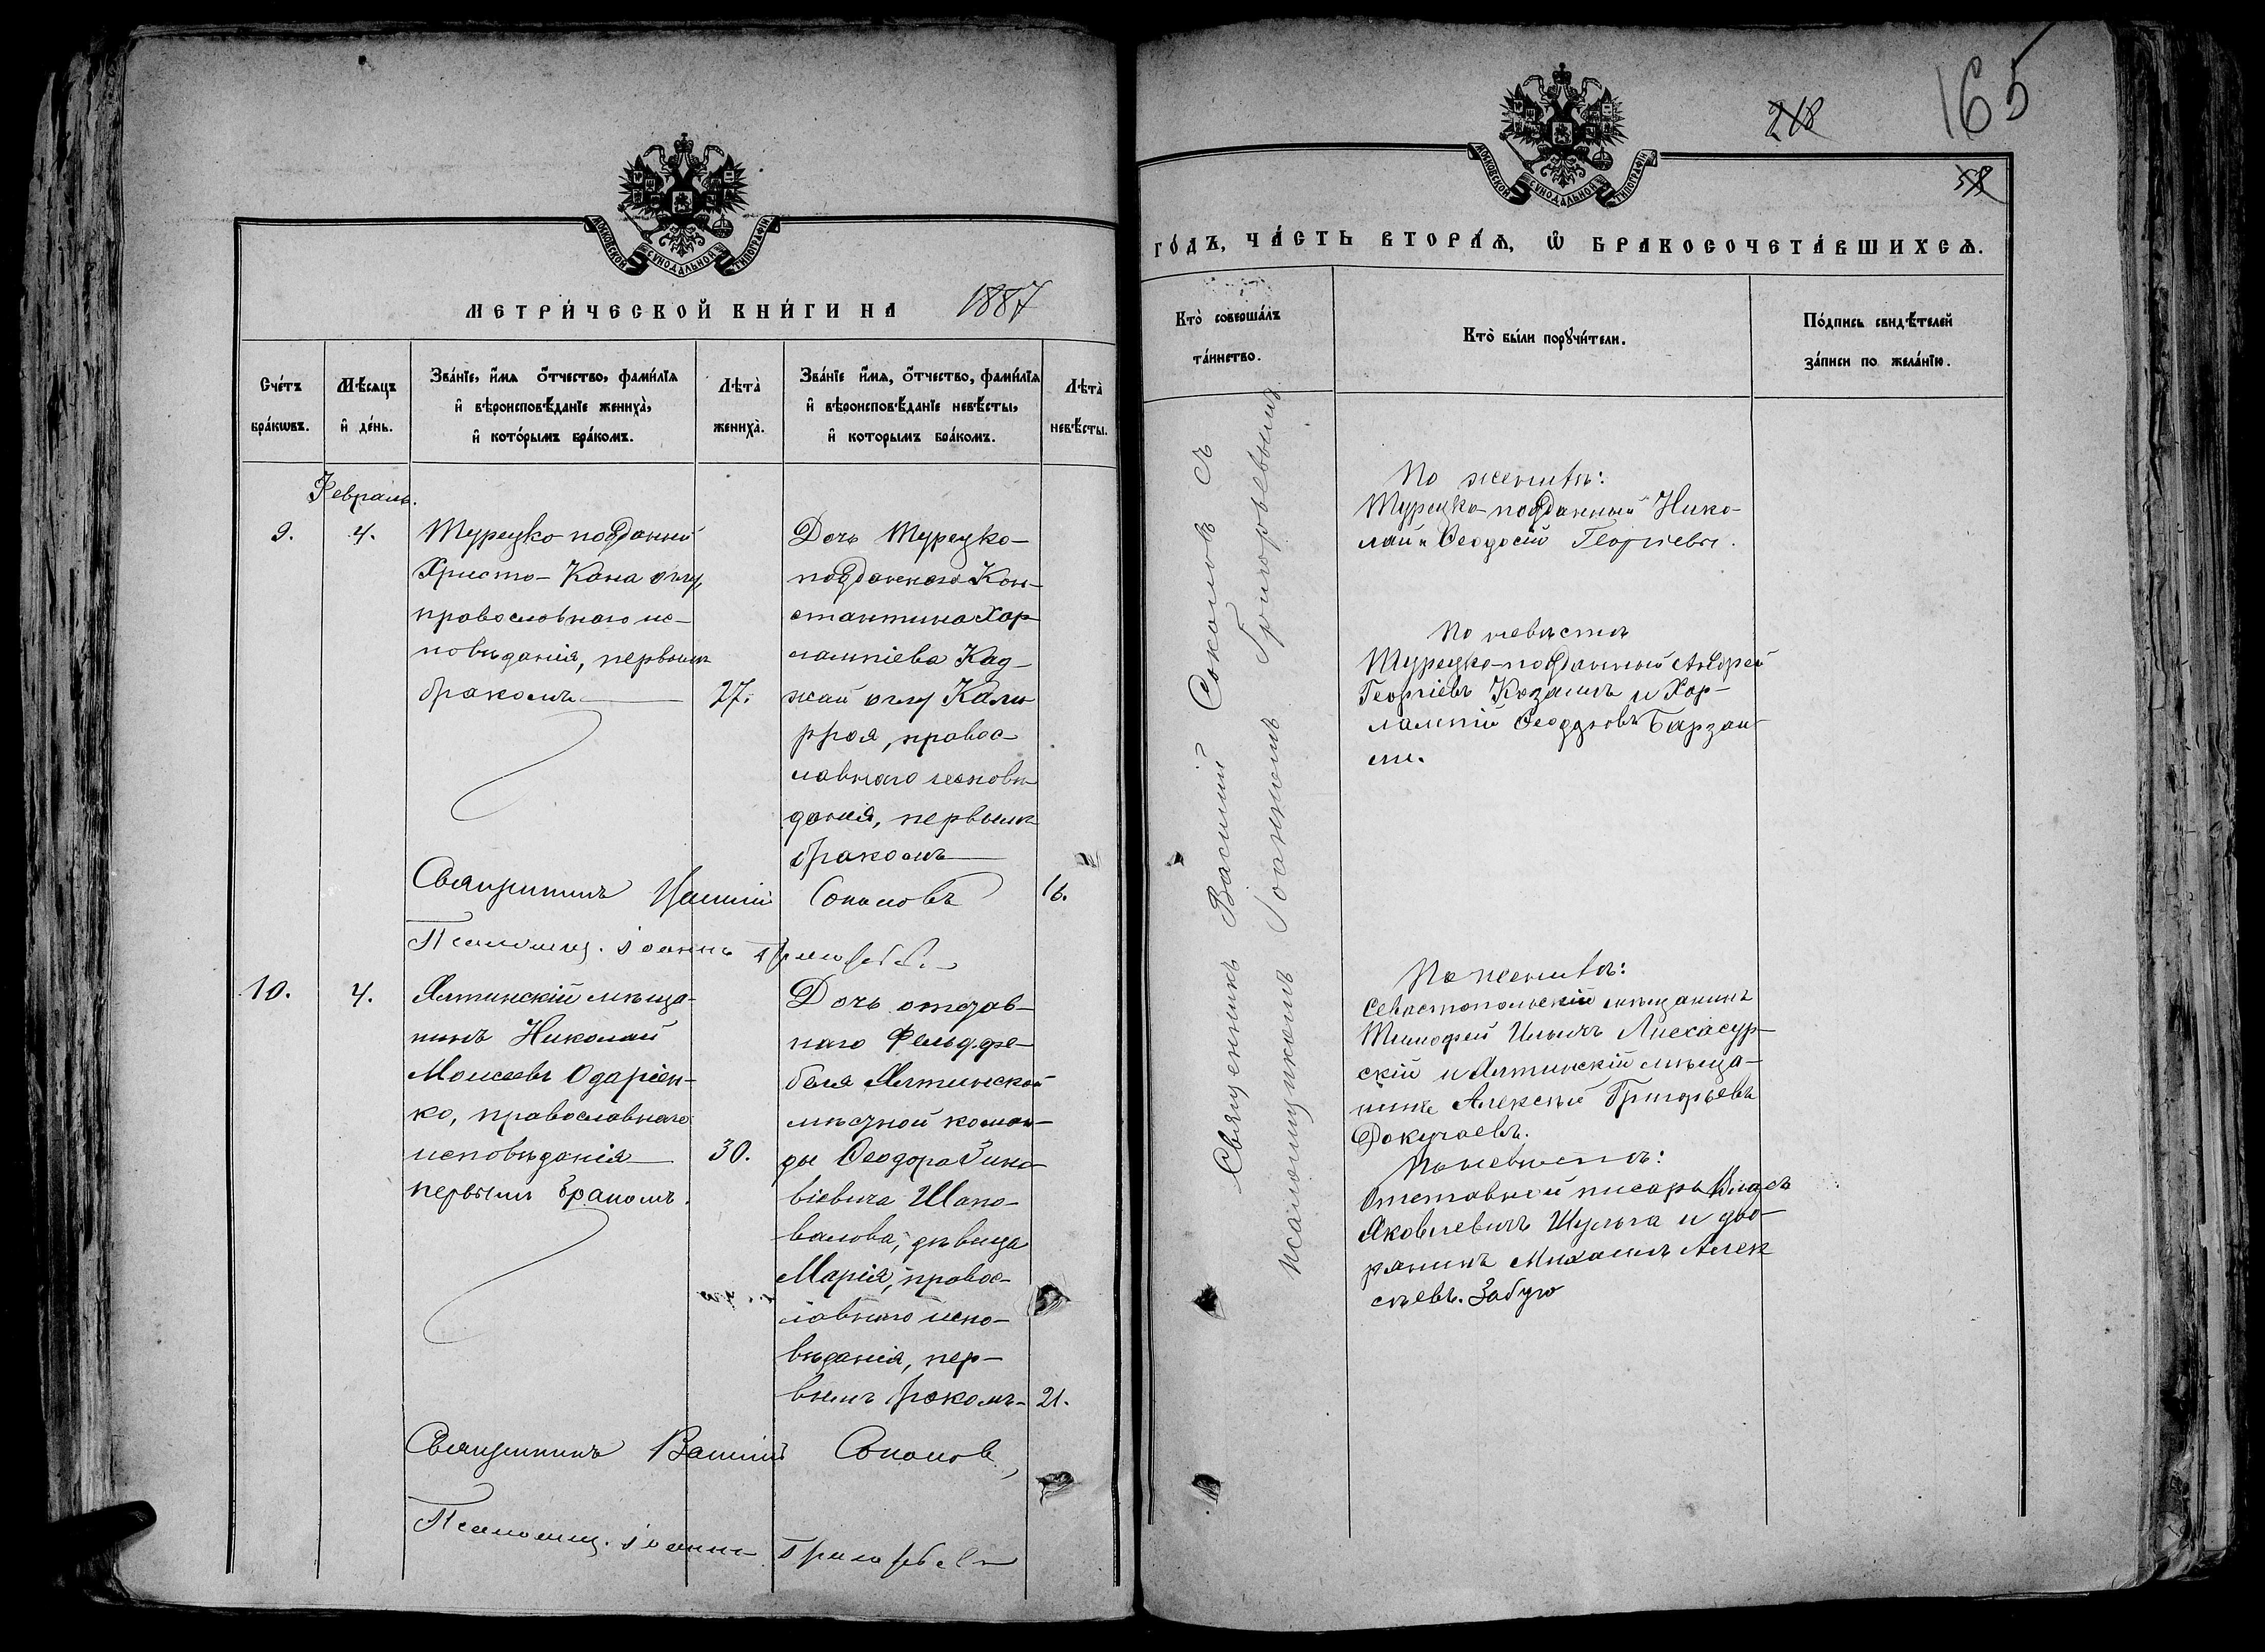 МОСКОВСКОЙ СѴНОДАЛЬНОЙ ТИПОГРАФІИ.
МЕТРИ́ЧЕСКОЙ КНИ́ГИ НА 1887
Сче́тъ бра́кѡвъ.
Мѣ́сяцъ и҆ де́нь.
Зва́нїе, и҆́мя ѻ҆́тчество, фами́лїя
и҆ вѣроисповѣ́данїе жениха̀,
и҆ кото́рымъ бра́комъ.
Лѣта̀ жениха̀.
Зва́нїе и҆́мя, ѻ҆́тчество, фами́лїя
и҆ вѣроисповѣ́данїе невѣ́сты,
и҆ которымъ бра́комъ.
Лѣта̀ невѣ́сты.
Февраль.
9.
4.
Турецко-подданный
Христо-Кана оглу,
православнаго ис-
повѣданія, первымъ
бракомъ
27.
Дочь Турецко-
подданнаго Кон-
стантина Хар-
лампіева Кад-
жай оглу Кали-
рроя, правос-
лавнаго исповѣ-
данія, первымъ
бракомъ
16.
Священникъ Василій Соколовъ
Псаломщ. Іоаннъ Григорьевъ
10.
4.
Ялтинскій мѣща-
нинъ Николай
Моисеевъ Одаріен-
ко, православнаго
исповѣданія
первымъ бракомъ.
30.
Дочь отстав-
наго Фельдфе-
беля Ялтинской
мѣстной коман-
ды Ѳеодора Зино-
віевича Шапо-
валова, дѣвица
Марія, правос-
лавнаго испо-
вѣданія, пер-
вымъ бракомъ-
21.
Священникъ Василій Соколовъ
Псаломщ. Іоаннъ Григорьевъ
165
218
58
МОСКОВСКОЙ СѴНОДАЛЬНОЙ ТИПОГРАФІИ.
ГО́ДЪ, ЧА́СТЬ ВТОРА́Я, Ѽ БРАКОСОЧЕТА́ВШИХСЯ.
Кто̀ соверша́лъ
та́инство.
Кто̀ бы́ли порꙋчи́тели.
По́дпись свидѣ́телей
за́писи по жела́нїю.
Священникъ Василій Соколовъ съ
псаломщикомъ Іоанномъ Григорьевымъ
По женихѣ:
Турецко-подданный Нико-
лай и Ѳеодосій Георгіевы.
По невѣстѣ
Турецко-подданный Андрей
Георгіевъ Казалиъ и Хар-
лампій Ѳеодоровъ Барзан-
ли.
По женихѣ:
Севастопольскій мѣщанинъ
Тимофей Ильичъ Лисасур-
скій и Ялтинскій мѣща-
нинъ Алексѣй Григорьевъ
Докучаевъ.
По невѣстѣ:
Отставной писарь Власъ
Яковлевичъ Шульга и дво-
рянинъ Михаилъ Алек
сѣевъ. Забуго